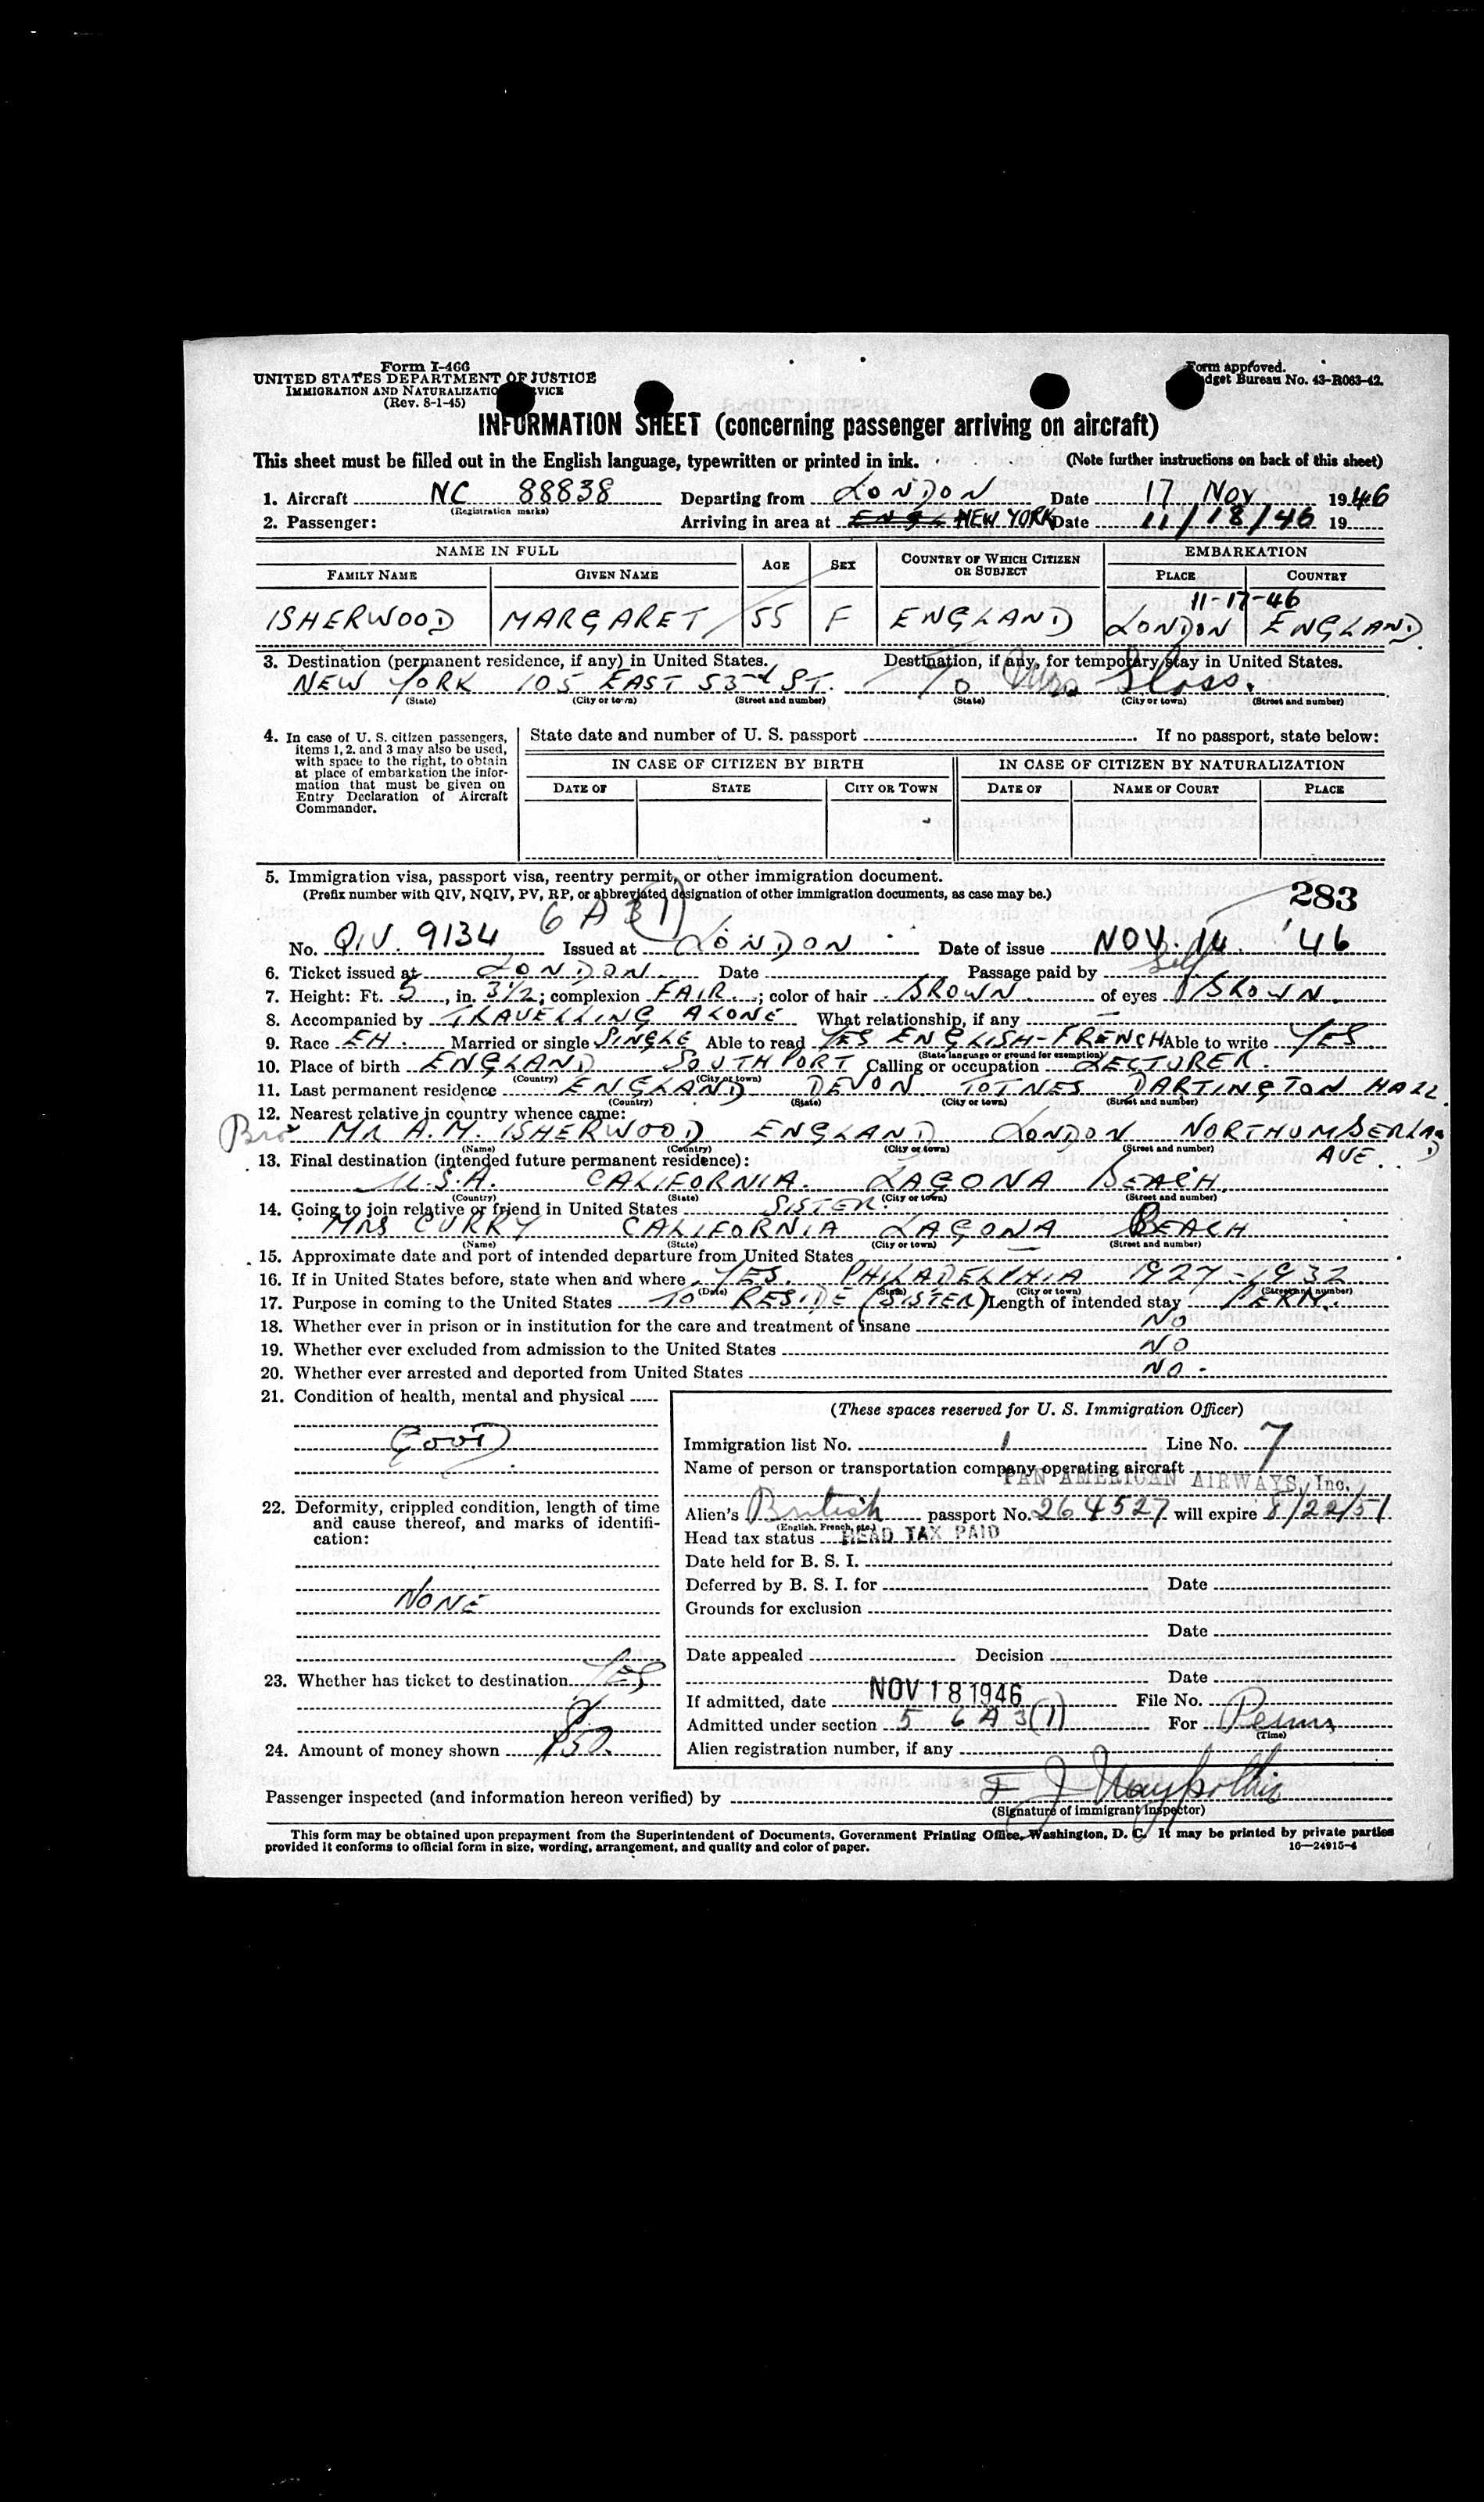 Form I-466
UNITED STATES DEPARTMENT OF JUSTICE
IMMIGRATION AND NATURALIZATION SERVICE
(Rev. 8-1-45)
Form approved.
Budget Bureau No. 43-R063-42.
INFORMATION SHEET (concerning passenger arriving on aircraft)
This sheet must be filled out in the English language, typewritten or printed in ink. (Note further instructions on back of this sheet)
1. Aircraft NC 88838 Departing from LONDON Date 17 Nov 1946
(Registration marks)
2. Passenger: Arriving in area at NEW YORK Date 11/18/46 19
NAME IN FULL AGE SEX COUNTRY OF WHICH CITIZEN OR SUBJECT EMBARKATION
FAMILY NAME GIVEN NAME PLACE COUNTRY
11-17-46
ISHERWOOD MARGARET 55 F ENGLAND LONDON ENGLAND
3. Destination (permanent residence, if any) in United States. Destination, if any, for temporary stay in United States.
NEW YORK 105 EAST 53rd ST. To Mrs Sloss.
(State) (City or town) (Street and number) (State) (City or town) (Street and number)
4. In case of U. S. citizen passengers, items 1, 2, and 3 may also be used, with space to the right, to obtain at place of embarkation the information that must be given on Entry Declaration of Aircraft Commander.
State date and number of U. S. passport If no passport, state below:
IN CASE OF CITIZEN BY BIRTH IN CASE OF CITIZEN BY NATURALIZATION
DATE OF STATE CITY OR TOWN DATE OF NAME OF COURT PLACE
5. Immigration visa, passport visa, reentry permit, or other immigration document.
(Prefix number with QIV, NQIV, PV, RP, or abbreviated designation of other immigration documents, as case may be.)
283
6 A 3(1)
No. QIV. 9134 Issued at LONDON Date of issue NOV. 14. '46
6. Ticket issued at LONDON. Date Passage paid by Self
7. Height: Ft. 5, in. 3½; complexion FAIR.; color of hair BROWN. of eyes BROWN.
8. Accompanied by TRAVELLING ALONE What relationship, if any —
9. Race EH. Married or single SINGLE Able to read YES ENGLISH-FRENCH Able to write YES.
(State language or ground for exemption)
10. Place of birth ENGLAND SOUTHPORT Calling or occupation LECTURER.
(Country) (City or town)
11. Last permanent residence ENGLAND DEVON. TOTNES DARTINGTON HALL.
(Country) (State) (City or town) (Street and number)
12. Nearest relative in country whence came:
Bro Mr A.M. ISHERWOOD ENGLAND LONDON NORTHUMBERLAND AVE.
(Name) (Country) (City or town) (Street and number)
13. Final destination (intended future permanent residence):
U.S.A. CALIFORNIA. LAGONA BEACH.
(Country) (State) (City or town) (Street and number)
14. Going to join relative or friend in United States SISTER.
MRS CURRY CALIFORNIA LAGONA BEACH
(Name) (State) (City or town) (Street and number)
15. Approximate date and port of intended departure from United States —
16. If in United States before, state when and where YES. PHILADELPHIA 1927-1932
(Date) (State) (City or town) (Street and number)
17. Purpose in coming to the United States TO RESIDE (SISTER) Length of intended stay PERM.
18. Whether ever in prison or in institution for the care and treatment of insane NO
19. Whether ever excluded from admission to the United States NO
20. Whether ever arrested and deported from United States NO.
21. Condition of health, mental and physical
GOOD
22. Deformity, crippled condition, length of time and cause thereof, and marks of identification:
NONE
23. Whether has ticket to destination YES
24. Amount of money shown $50.
(These spaces reserved for U. S. Immigration Officer)
Immigration list No. 1 Line No. 7
Name of person or transportation company operating aircraft
PAN AMERICAN AIRWAYS, Inc.
Alien's British passport No. 264527 will expire 8/22/51
(English, French, etc.)
Head tax status HEAD TAX PAID
Date held for B. S. I.
Deferred by B. S. I. for Date
Grounds for exclusion
Date
Date appealed Decision
Date
If admitted, date NOV 18 1946 File No.
Admitted under section 5 6 A 3(1) For Perm
(Time)
Alien registration number, if any
Passenger inspected (and information hereon verified) by F J
(Signature of immigrant inspector)
This form may be obtained upon prepayment from the Superintendent of Documents, Government Printing Office, Washington, D. C. It may be printed by private parties
provided it conforms to official form in size, wording, arrangement, and quality and color of paper. 16—24915-4